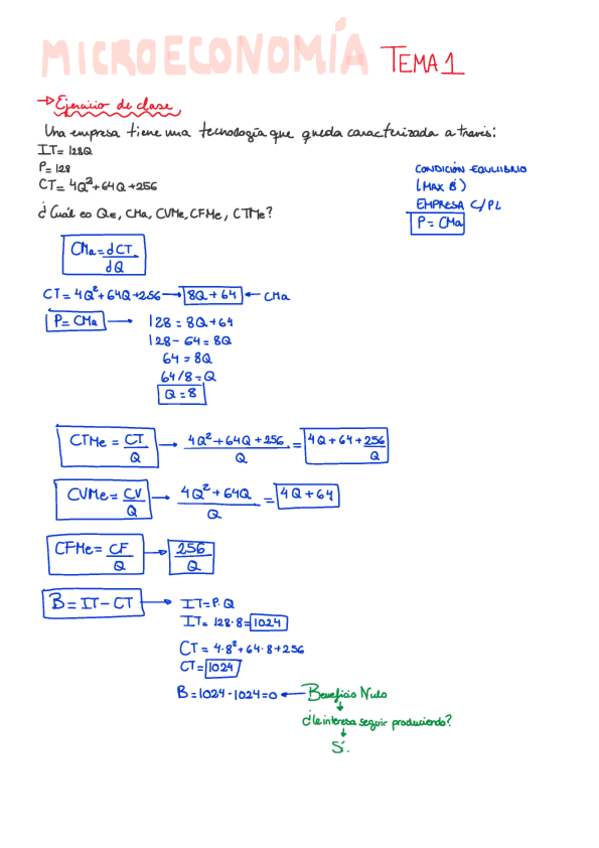 MICROECONOMÍA TEMA 1
→ Ejercicio de clase
Una empresa tiene una tecnología que queda caracterizada a través:
IT = 128Q
P = 128
CT = 4Q² + 64Q + 256
¿Cuál es Qe, CMa, CVMe, CFMe, CTMe?
CONDICIÓN EQUILIBRIO
(MAX B)
EMPRESA C/PL
P = CMa
CMa = dCT/dQ
CT = 4Q² + 64Q + 256 → 8Q + 64 ← CMa
P = CMa → 128 = 8Q + 64
128 - 64 = 8Q
64 = 8Q
64/8 = Q
Q = 8
CTMe = CT/Q → 4Q² + 64Q + 256/Q = 4Q + 64 + 256/Q
CVMe = CV/Q → 4Q² + 64Q/Q = 4Q + 64
CFMe = CF/Q → 256/Q
B = IT - CT → IT = P·Q
IT = 128·8 = 1024
CT = 4·8² + 64·8 + 256
CT = 1024
B = 1024 - 1024 = 0 ← Beneficio Nulo
↓
¿Le interesa seguir produciendo?
↓
Sí.